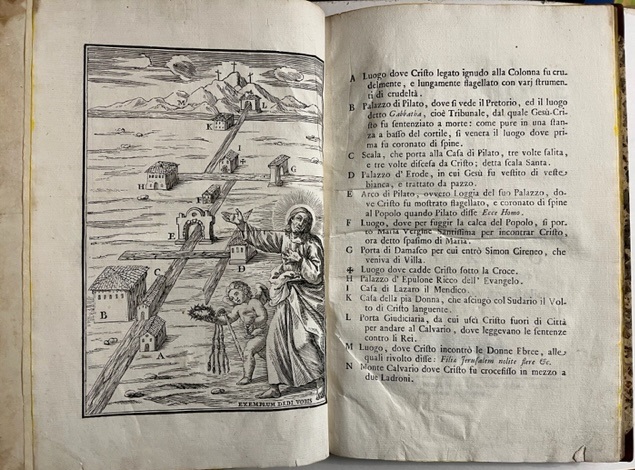 M
L
K
I
G
H
F
E
D
C
B
A
EXEMPLUM DEDI VOBIS
A Luogo dove Cristo legato ignudo alla Colonna fu cru-
delmente, e lungamente flagellato con varj strumen-
ti di crudeltà.
B Palazzo di Pilato, dove si vede il Pretorio, ed il luogo
detto Gabbatha, cioè Tribunale, dal quale Gesù-Cri-
sto fu sentenziato a morte: come pure in una stan-
za a basso del cortile, si venera il luogo dove pri-
ma fu coronato di spine.
C Scala, che porta alla Casa di Pilato, tre volte salita,
e tre volte discesa da Cristo; detta scala Santa.
D Palazzo d'Erode, in cui Gesù fu vestito di veste
bianca, e trattato da pazzo.
E Arco di Pilato, ovvero Loggia del suo Palazzo, do-
ve Cristo fu mostrato flagellato, e coronato di spine
al Popolo quando Pilato disse Ecce Homo.
F Luogo, dove per fuggir la calca del Popolo, si por-
tò Maria Vergine Santissima per incontrar Cristo,
ora detto spasimo di Maria.
G Porta di Damasco per cui entrò Simon Cireneo, che
veniva di Villa.
✠ Luogo dove cadde Cristo sotto la Croce.
H Palazzo d'Epulone Ricco dell' Evangelo.
I Casa di Lazaro il Mendico.
K Casa della pia Donna, che asciugò col Sudario il Vol-
to di Cristo languente.
L Porta Giudiciaria, da cui uscì Cristo fuori di Città
per andare al Calvario, dove leggevano le sentenze
contro li Rei.
M Luogo, dove Cristo incontrò le Donne Ebree, alle
quali rivolto disse: Filiæ Jerusalem nolite flere &c.
N Monte Calvario dove Cristo fu crocefisso in mezzo a
due Ladroni.